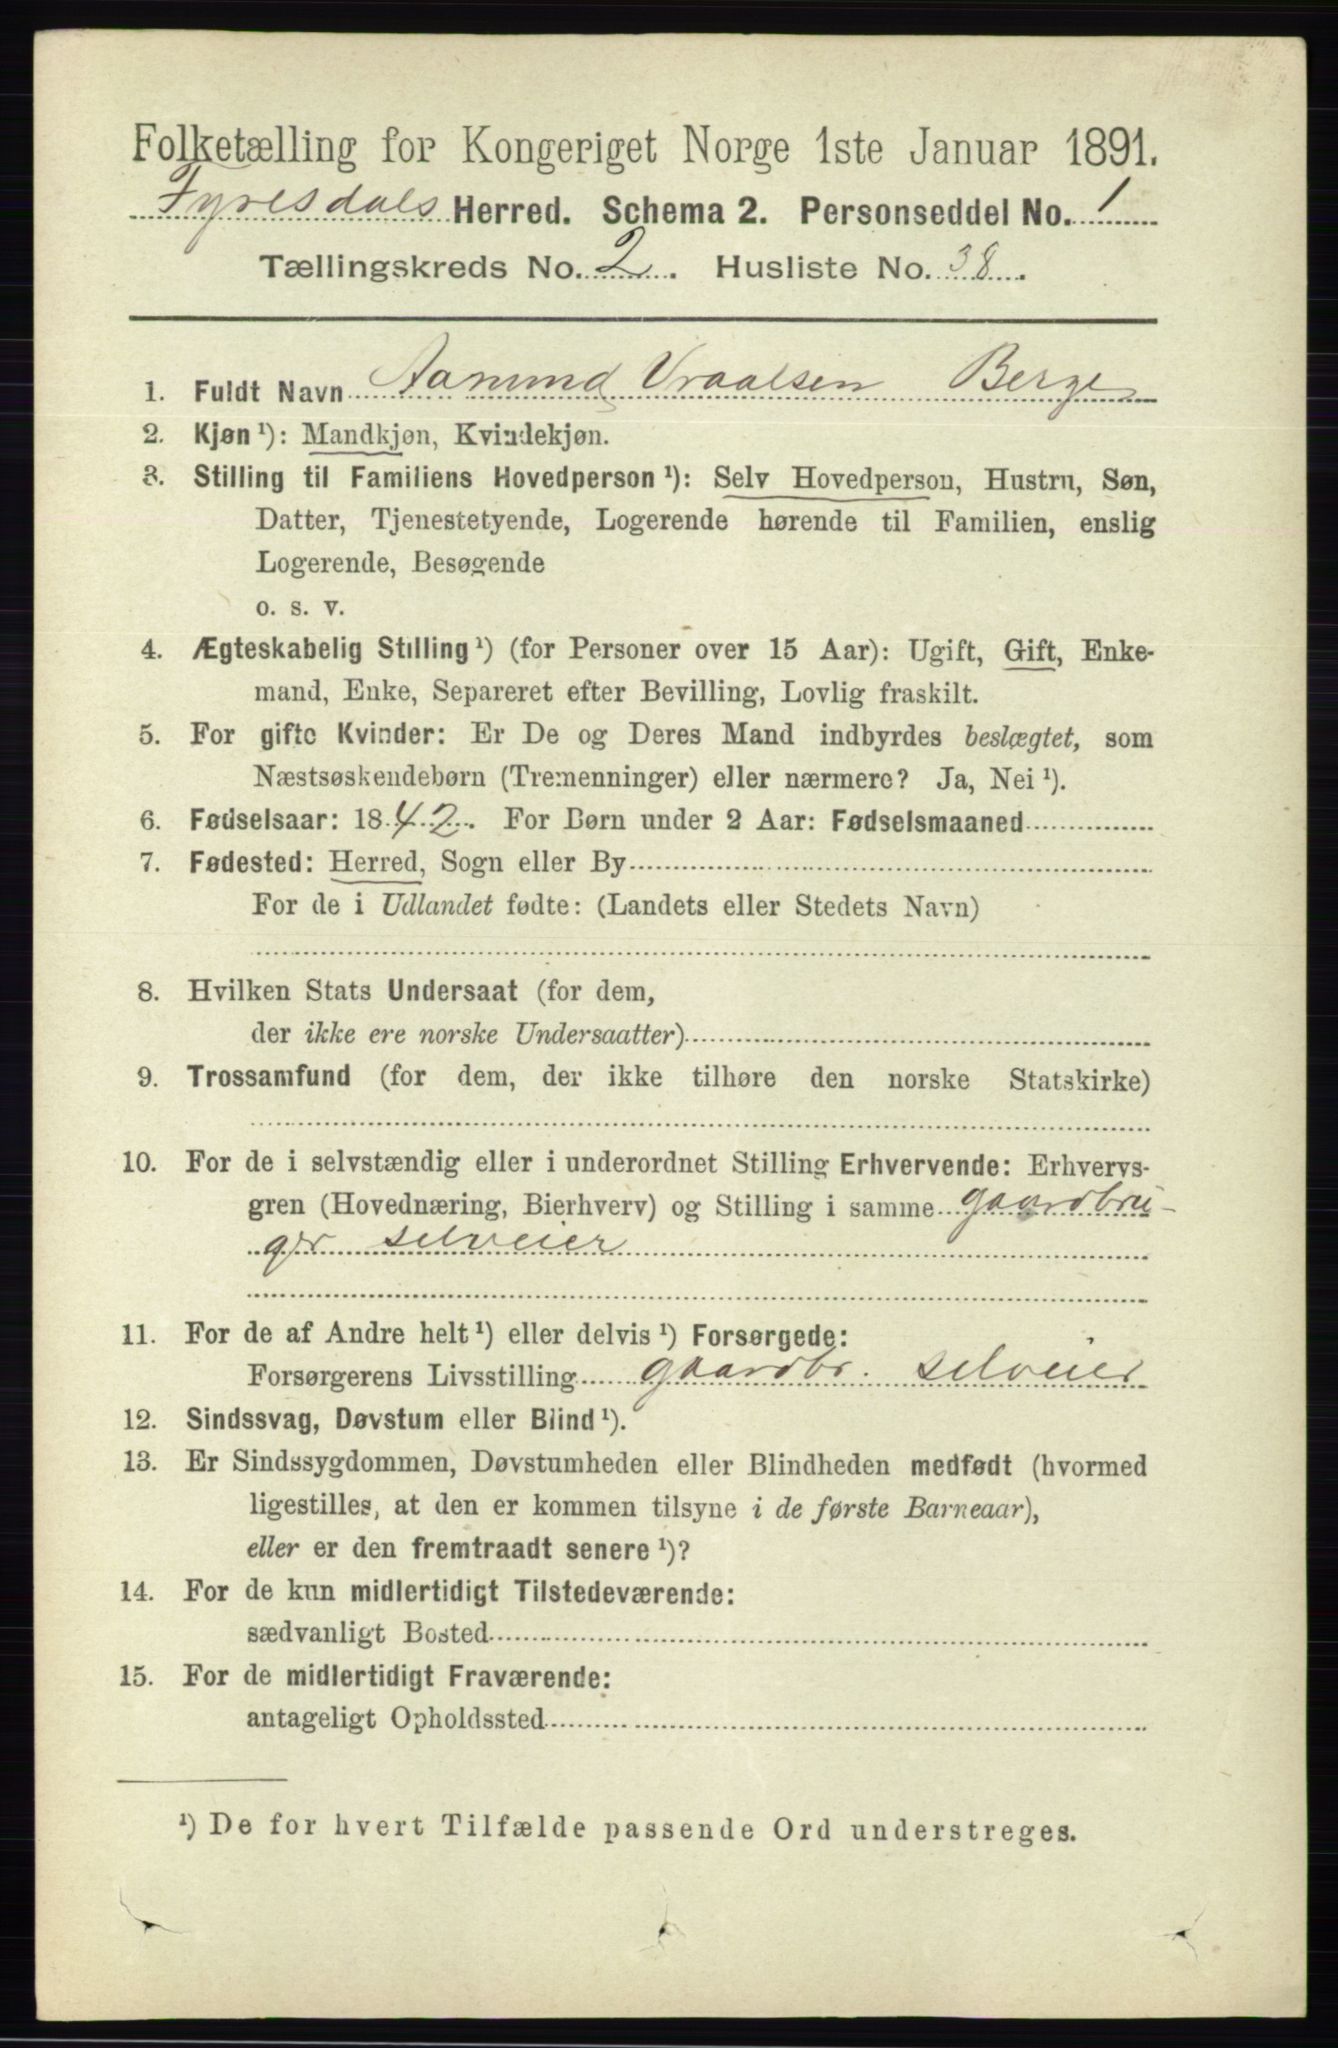 Folketælling for Kongeriget Norge 1ste Januar 1891.
Fyresdals Herred. Schema 2. Personseddel No. 1
Tællingskreds No. 2. Husliste No. 38.
1. Fuldt Navn Aamund Vraalsen Berge
2. Kjøn ¹): Mandkjøn, Kvindekjøn.
3. Stilling til Familiens Hovedperson ¹): Selv Hovedperson, Hustru, Søn,
Datter, Tjenestetyende, Logerende hørende til Familien, enslig
Logerende, Besøgende
o. s. v.
4. Ægteskabelig Stilling ¹) (for Personer over 15 Aar): Ugift, Gift, Enke-
mand, Enke, Separeret efter Bevilling, Lovlig fraskilt.
5. For gifte Kvinder: Er De og Deres Mand indbyrdes beslægtet, som
Næstsøskendebørn (Tremenninger) eller nærmere? Ja, Nei ¹).
6. Fødselsaar: 1842. For Børn under 2 Aar: Fødselsmaaned
7. Fødested: Herred, Sogn eller By
For de i Udlandet fødte: (Landets eller Stedets Navn)
8. Hvilken Stats Undersaat (for dem,
der ikke ere norske Undersaatter)
9. Trossamfund (for dem, der ikke tilhøre den norske Statskirke)
10. For de i selvstændig eller i underordnet Stilling Erhvervende: Erhvervs-
gren (Hovednæring, Bierhverv) og Stilling i samme gaardbru-
ger selveier
11. For de af Andre helt ¹) eller delvis ¹) Forsørgede:
Forsørgerens Livsstilling gaardbr. selveier
12. Sindssvag, Døvstum eller Blind ¹).
13. Er Sindssygdommen, Døvstumheden eller Blindheden medfødt (hvormed
ligestilles, at den er kommen tilsyne i de første Barneaar),
eller er den fremtraadt senere ¹)?
14. For de kun midlertidigt Tilstedeværende:
sædvanligt Bosted
15. For de midlertidigt Fraværende:
antageligt Opholdssted
¹) De for hvert Tilfælde passende Ord understreges.